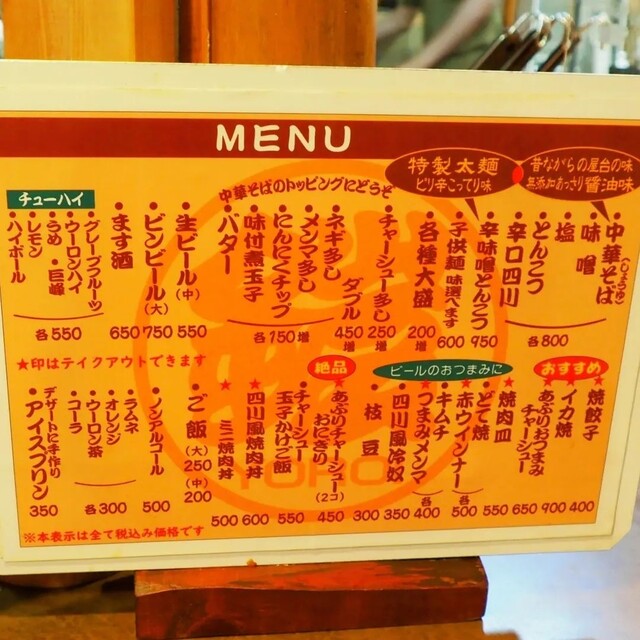 MENU
特製太麺
ピリ辛こってり味
昔ながらの屋台の味
無添加あっさり醤油味
・中華そば(しょうゆ)
・味噌
・塩
・とんこつ
・辛口四川
各800
・辛味噌とんこつ 950
・子供麺 味選べます 600
・各種大盛 200増
中華そばのトッピングにどうぞ
・チャーシュー多し 250増
ダブル 450増
・ネギ多し
・メンマ多し
・にんにくチップ
・味付煮玉子
・バター
各150増
・生ビール(中) 550
・ビンビール(大) 750
・ます酒 650
チューハイ
・グレープフルーツ
・ウーロンハイ
・うめ・巨峰
・レモン
・ハイボール
各550
★印はテイクアウトできます
おすすめ
★焼餃子 400
★イカ焼 900
★あぶりおつまみチャーシュー 650
ビールのおつまみに
★焼肉皿 550
・どて焼
・赤ウィンナー
各500
・キムチ
・つまみメンマ
各400
・四川風冷奴 350
・枝豆 300
絶品
★あぶりチャーシューおにぎり(2コ) 450
・チャーシュー玉子かけご飯 550
★四川風焼肉丼 600
★ミニ焼肉丼 500
・ご飯 (大)250 (中)200
・ノンアルコール 500
・ラムネ
・オレンジ
・ウーロン茶
・コーラ
各300
デザートに手作り
・アイスプリン 350
※本表示は全て税込み価格です